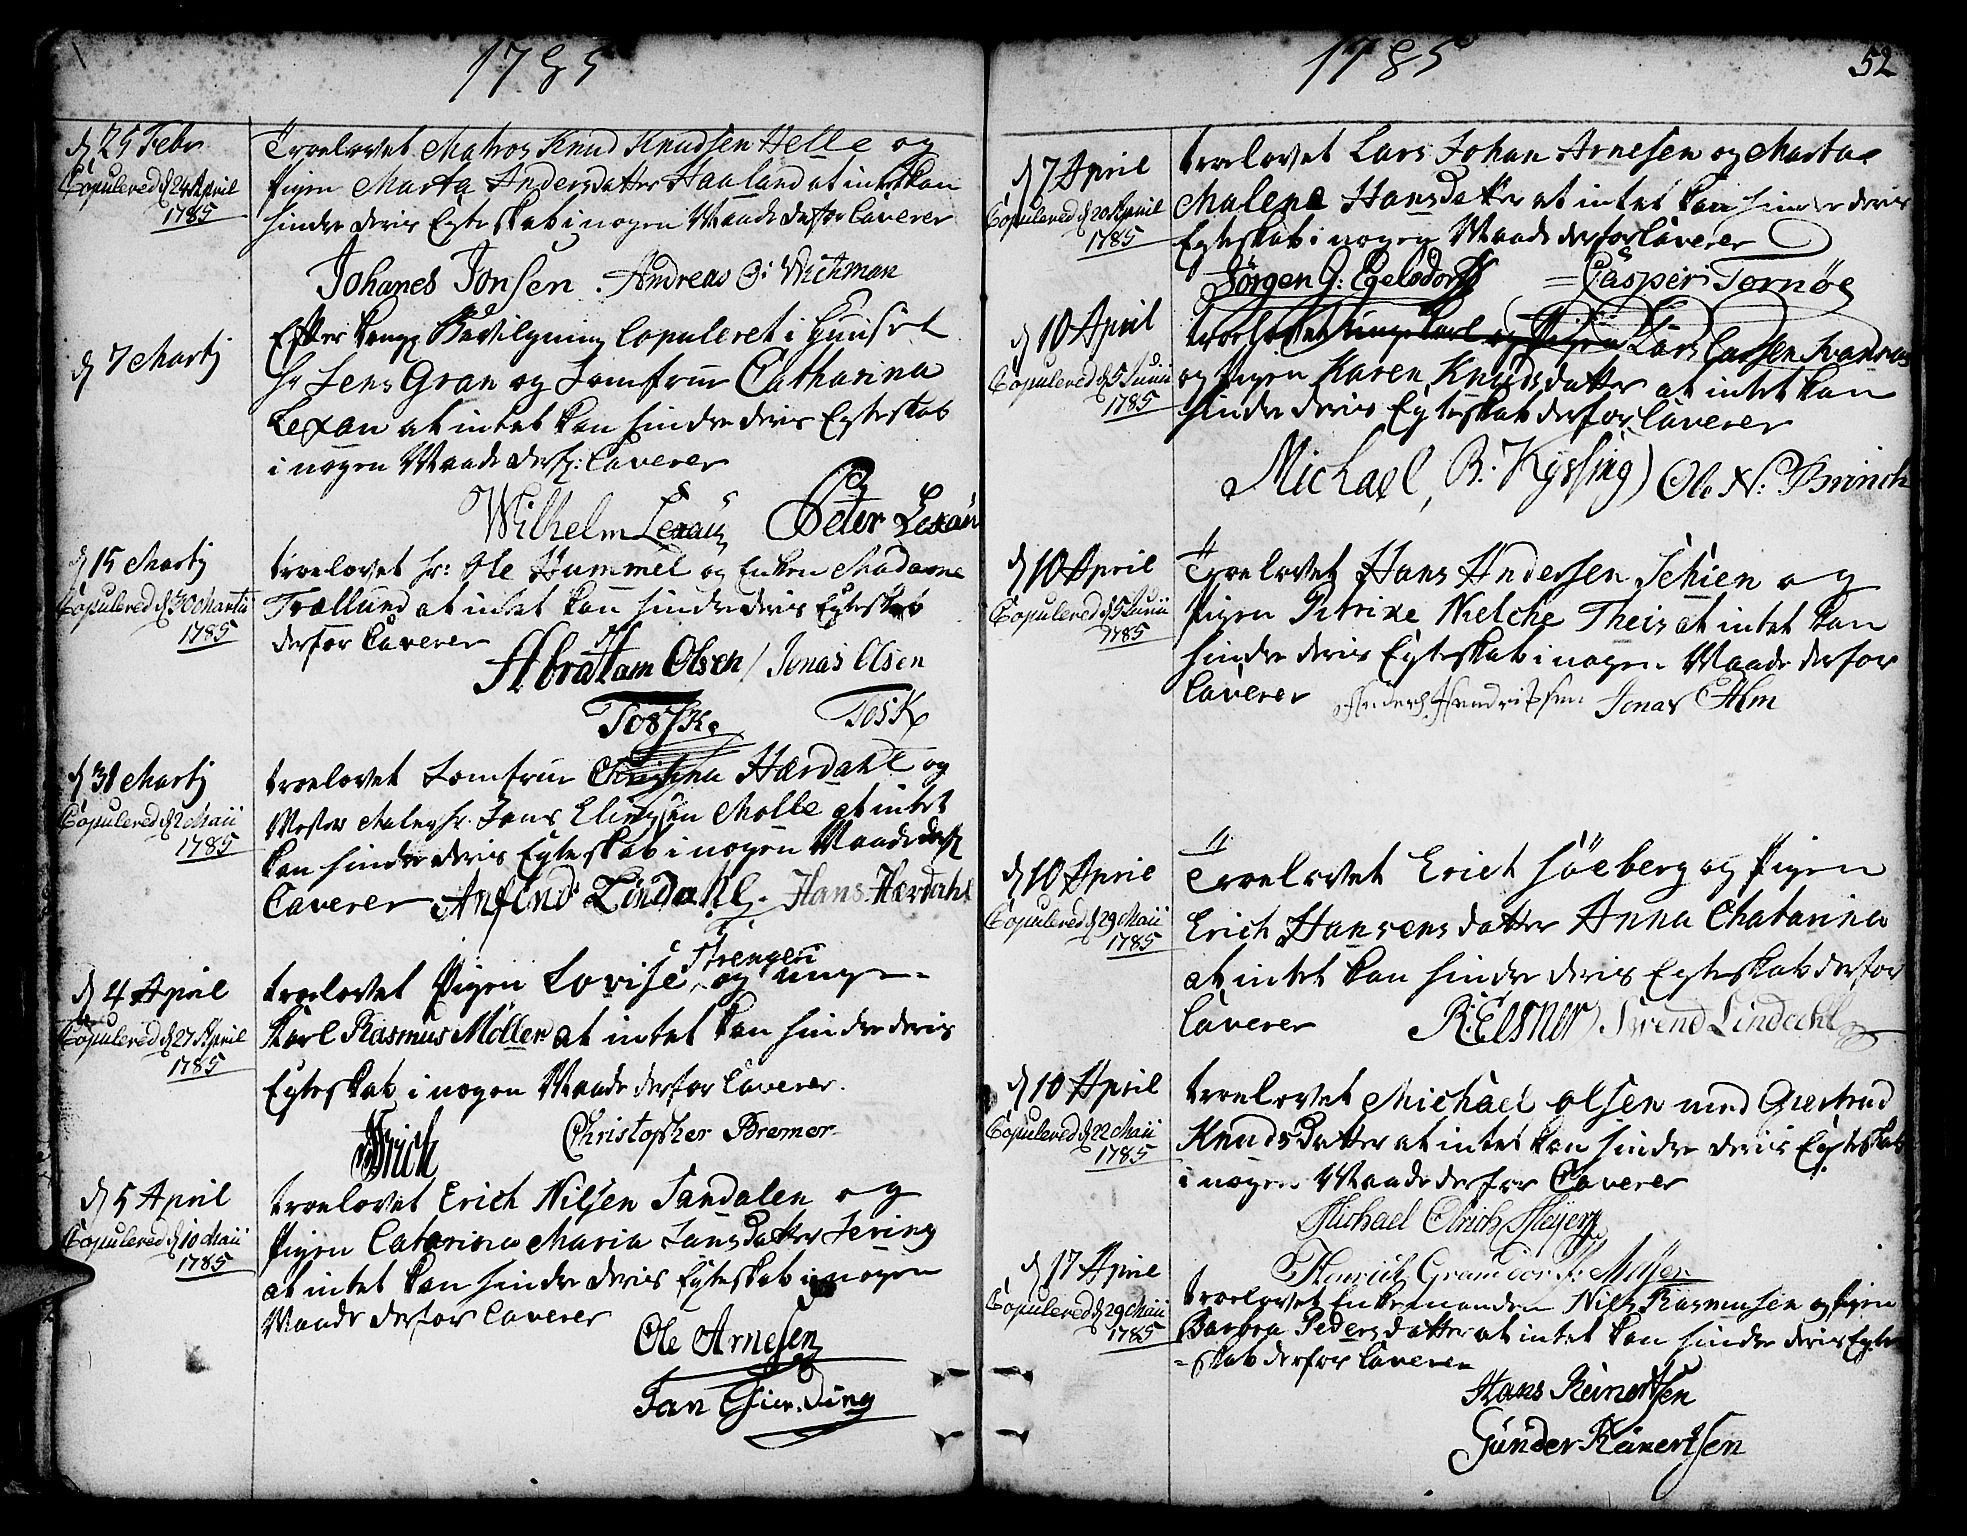 1785
d 25 Febr
Copulered d 24 April
1785
Troelovet Matros Knud Knudsen Helle og
Pigen Marta Andersdatter Haaland at intet kan
hindre deris Egteskab i nogen Maade derfor Caverer
Johanes Jonsen. Andreas O: Wichman
d 7 Martj
Efter kongl Bevilgning Copuleret i Huuset
hr Jens Gran og Jomfrue Catharina
Lexau at intet kan hindre deris Egteskab
i nogen Maade derf: Caverer
Wilhelm Lexau Peter Lexau
d 15 Martj
Copulered d 30 Martii
1785
troelovet hr: Ole Hummel og Enken Madame
Trællund at intet kan hindre deris Egteskab
derfor Caverer
Abraham Olsen / Jonas Olsen
Tosk. Tosk
d 31 Martj
Copulered d 2 Maii
1785
troelovet Jomfrue Christina Hærdahl og
Mester Maler hr. Jens Elingsen Molle at intet
kan hindre deris Egteskab i nogen Maade derf
Caverer Anfind Lindahl. Hans Hærdahl
d 4 April
Copulered d 27 April
1785
troelovet Pigen Lovise Strengen og unge
Karl Rasmus Moller at intet kan hindre deris
Egteskab i nogen Maade derfor Caverer.
Christopher Bremer
d 5 April
Copulered d 10 Maii
1785
troelovet Erich Nilsen Sandalen og
Pigen Catarina Maria Jansdatter Jering
at intet kan hindre deris Egteskab i nogen
Maade derfor Caverer
Ole Arnesen
Jan
1785
52
d 7 April
Copulered d 20 April
1785
troelovet Lars Johan Arnesen og Marta
Malene Hansdatter at intet kan hindre deris
Egteskab i nogen Maade derfor Caverer
Jörgen G: Egelsdorff = Casper Tornöe
d 10 April
Copulered d 5 Junii
1785
troelovet Lars Larsen
og Pigen Karen Knudsdatter at intet kan
hindre deris Egteskab derfor Caverer
Michael, B. Kyssing) Ole N: Brinch
d 10 April
Copulered d 5 Junii
1785
Troelovet Hans Andersen Schien og
Pigen Petrixe Nielche Theis at intet kan
hindre deris Egteskab i nogen Maade derfor
Caverer Anders Hendrichsen Jonas Alm
d 10 April
Copulered d 29 Maii
1785
Troelovet Erich Söeberg og Pigen
Erich Hansens datter Anna Chatarina
at intet kan hindre deris Egteskab derfor
Caverer R: Elsner / Svend Lindahl
d 10 April
Copulered d 22 Maii
1785
troelovet Michael Olsen med Giertrud
Knudsdatter at intet kan hindre deris Egteskab
i nogen Maade derfor Caverer
Michael Elrich Meyer
Henrich Meÿer
d 17 April
Copulered d 29 Maii
1785
troelovet Enkemanden Niels Rasmusen og Pigen
Barbra Pedersdatter at intet kan hindre deris Egte
=skab derfor Caverer
Hans Reinertsen
Gunder Reinertsen